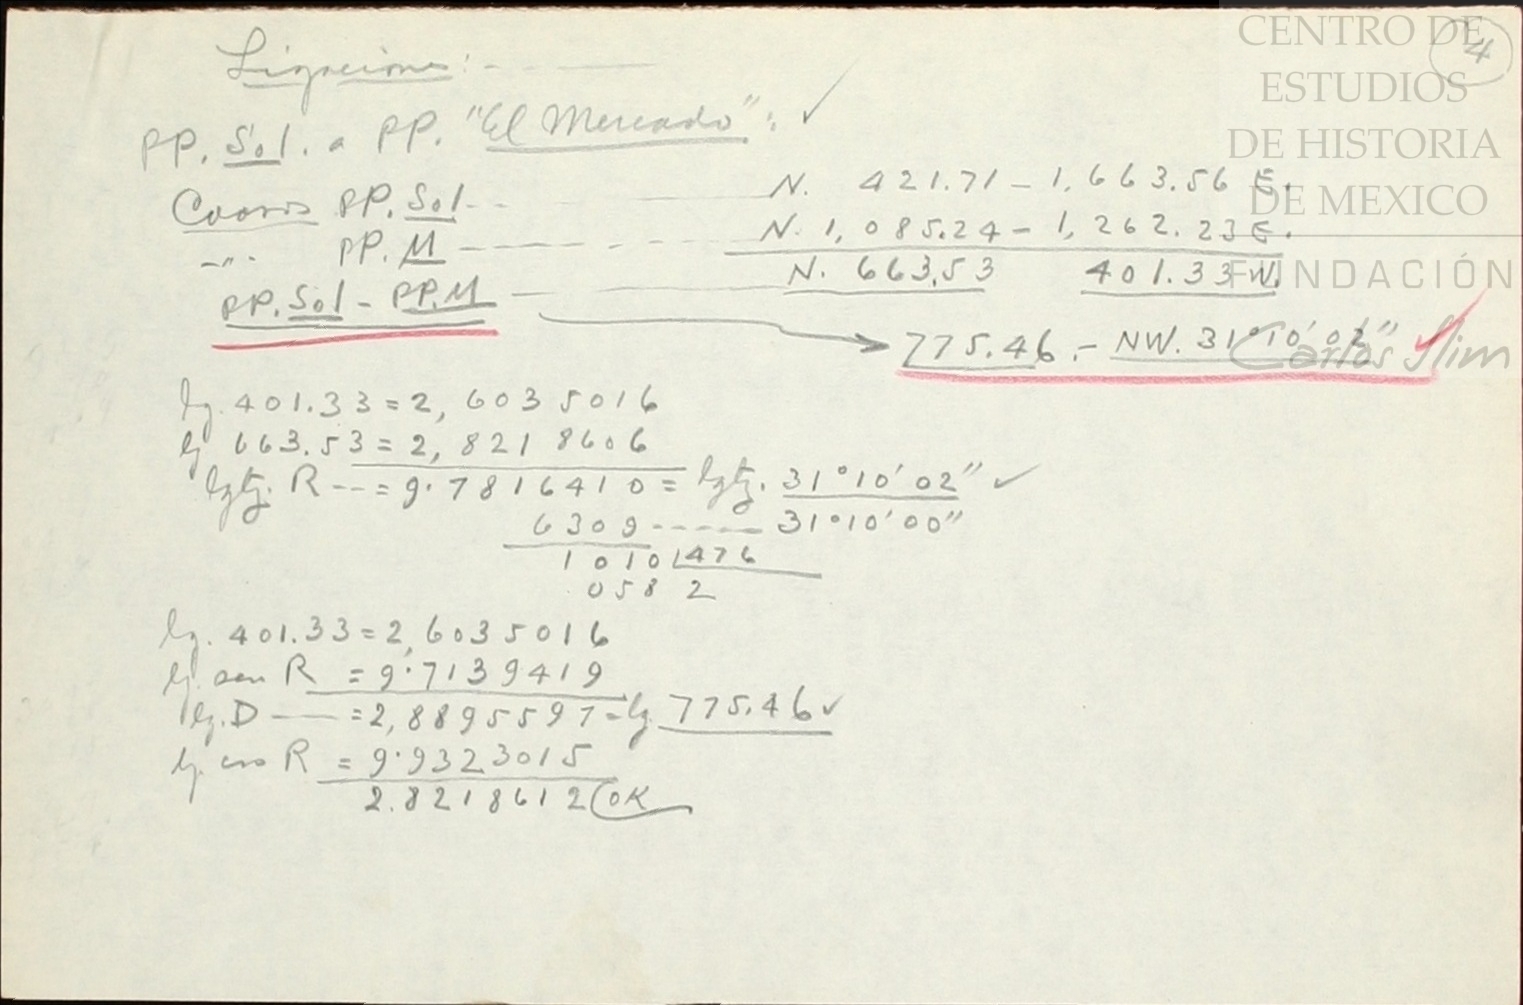 4
Ligaciones: - ——
PP. Sol. a PP. "El Mercado": ✓
Coords PP. Sol -- N. 421.71 - 1,663.56 E.
-"- PP. M ---- N. 1,085.24 - 1,262.23 E.
N. 663.53 401.33 W.
PP. Sol - PP. M —
775.46 .- NW. 31°10'02" ✓
lg. 401.33 = 2,6035016
lg 663.53 = 2,8218606
lgtg. R --- = 9.7816410 = lgtg. 31°10'02" ✓
6309 ----- 31°10'00"
1010 476
058 2
lg. 401.33 = 2,6035016
lg. sen R = 9.7139419
lg. D —— = 2,8895597 = lg. 775.46 ✓
lg. cos R = 9.9323015
2.8218612 OK
CENTRO DE
ESTUDIOS
DE HISTORIA
DE MEXICO
FUNDACIÓN
Carlos Slim